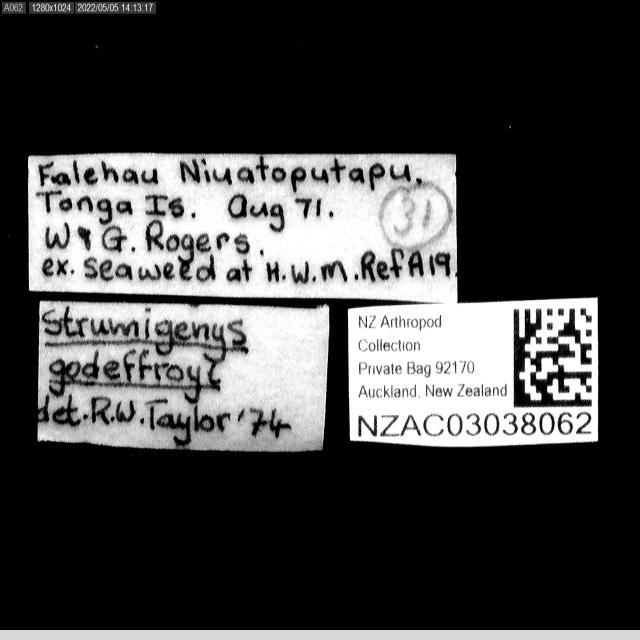 A062 1280x1024 2022/05/05 14:13:17
Falehau Niuatoputapu.
Tonga Is. Aug 71.
31
W & G. Rogers.
ex. seaweed at H.W.M. Ref A19.
Strumigenys
godeffroyi
det. R.W. Taylor '74
NZ Arthropod
Collection
Private Bag 92170
Auckland, New Zealand
NZAC03038062